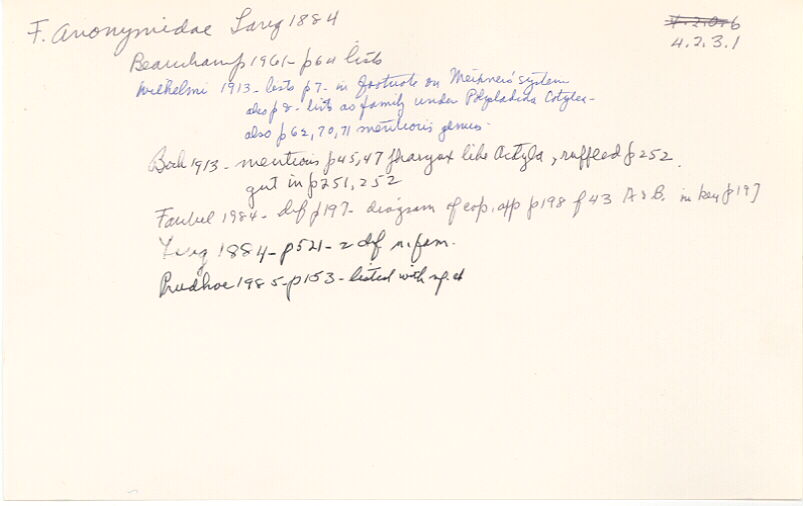 F. Anonymidae Lang 1884
4.2.0.6
4.2.3.1
Beauchamp 1961 - p64 lists
Wilhelmi 1913 - lists p7 - in footnote on Meixner's system
also p8 - lists as family under Polycladida Cotylea -
also p62, 70, 71 mentions genus.
Bock 1913 - mentions p45, 47 pharynx like Acotylea, ruffled p252
gut in p251, 252
Faubel 1984 - def p197 - diagram of cop. app p198 f 43 A & B. in key p197
Lang 1884 - p521 - z df n. fam.
Prudhoe 1985 - p153 - listed with